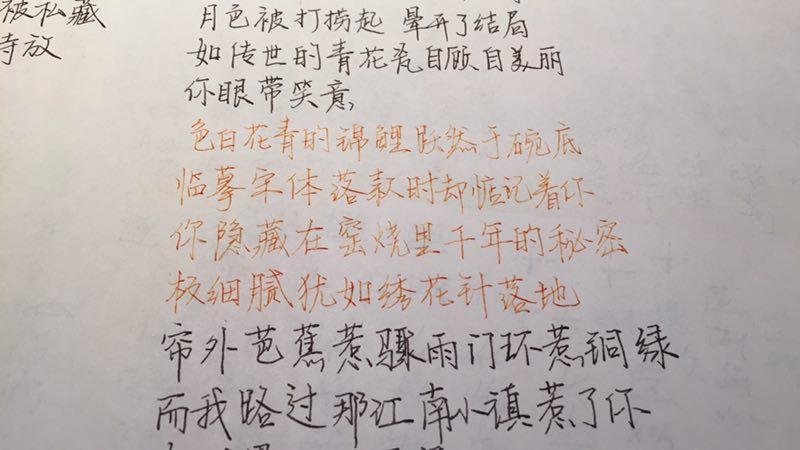 被私藏
寺放
月色被打捞起 晕开了结局
如传世的青花瓷自顾自美丽
你眼带笑意
色白花青的锦鲤跃然于碗底
临摹宋体落款时却惦记着你
你隐藏在窑烧里千年的秘密
极细腻犹如绣花针落地
帘外芭蕉惹骤雨门环惹铜绿
而我路过那江南小镇惹了你